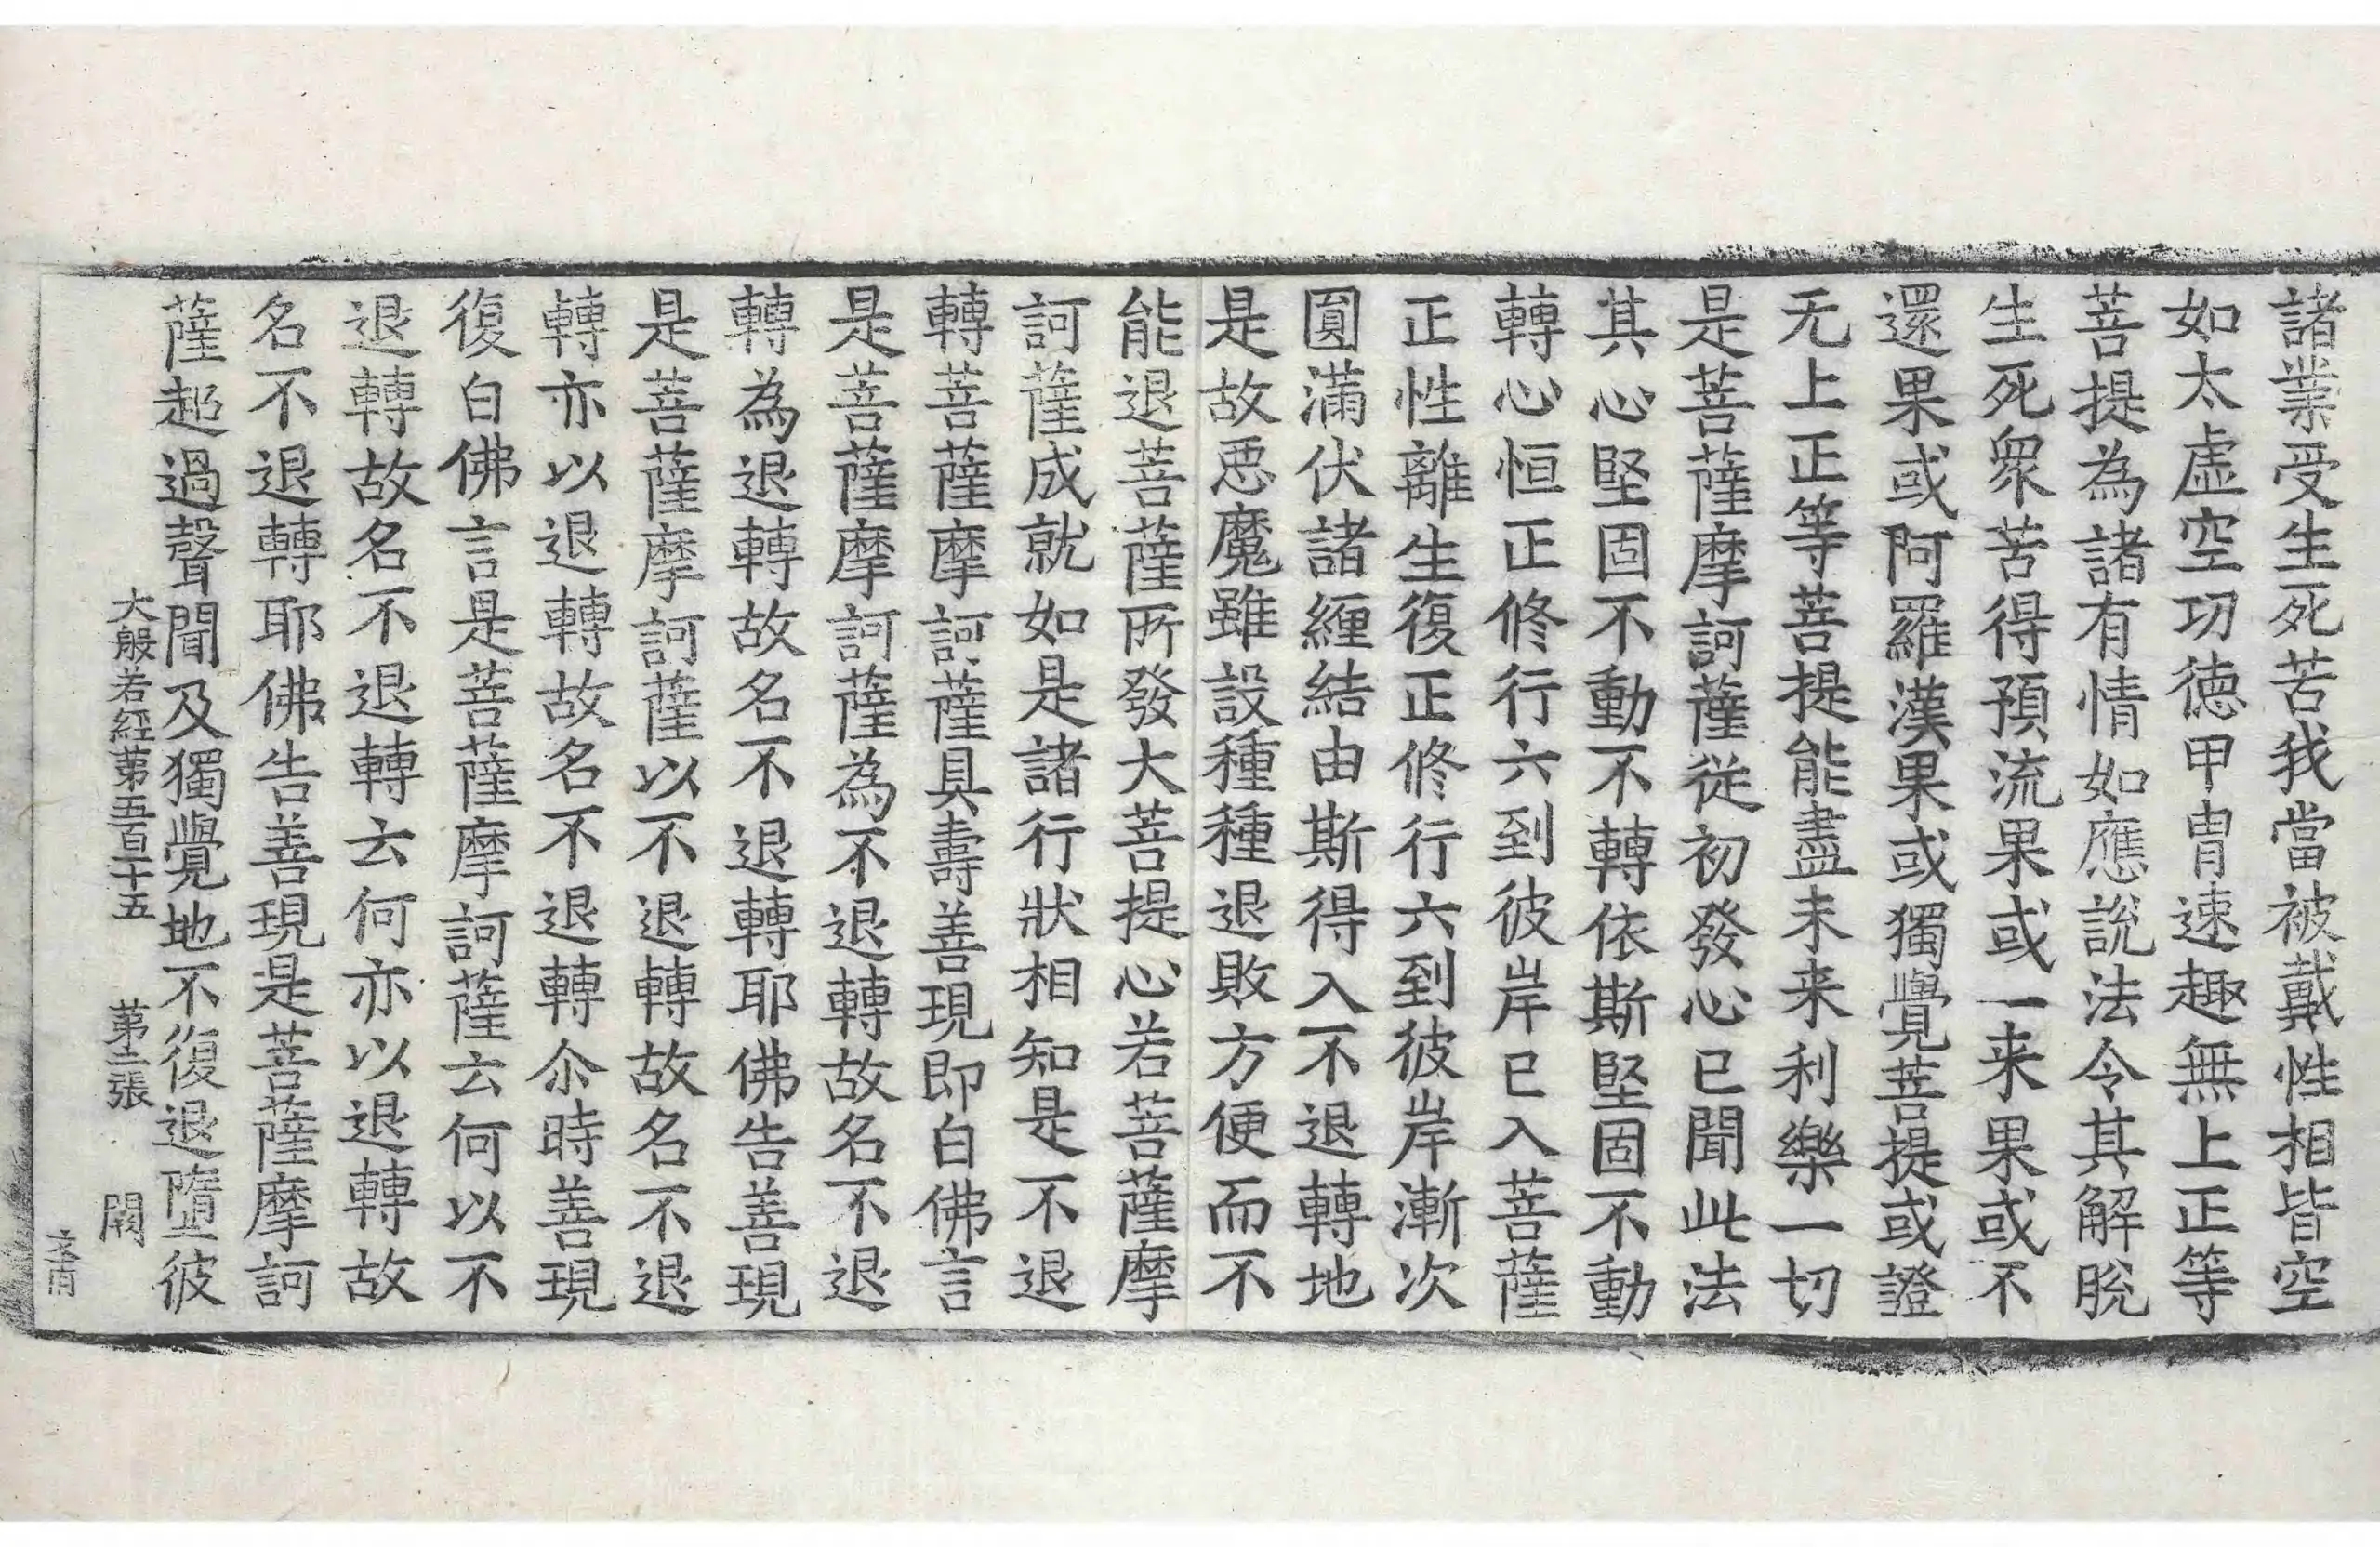 諸業受生死苦我當被戴性相皆空
如太虛空功德甲冑速趣無上正等
菩提為諸有情如應說法令其解脫
生死衆苦得預流果或一来果或不
還果或阿羅漢果或獨覺菩提或證
无上正等菩提能盡未来利樂一切
是菩薩摩訶薩從初發心已聞此法
其心堅固不動不轉依斯堅固不動
轉心恒正修行六到彼岸已入菩薩
正性離生復正修行六到彼岸漸次
圓滿伏諸纏結由斯得入不退轉地
是故惡魔雖設種種退敗方便而不
能退菩薩所發大菩提心若菩薩摩
訶薩成就如是諸行狀相知是不退
轉菩薩摩訶薩具壽善現即白佛言
是菩薩摩訶薩為不退轉故名不退
轉為退轉故名不退轉耶佛告善現
是菩薩摩訶薩以不退轉故名不退
轉亦以退轉故名不退轉尒時善現
復白佛言是菩薩摩訶薩云何以不
退轉故名不退轉云何亦以退轉故
名不退轉耶佛告善現是菩薩摩訶
薩超過聲聞及獨覺地不復退墮彼
大般若經第五百十五 第二張 闕